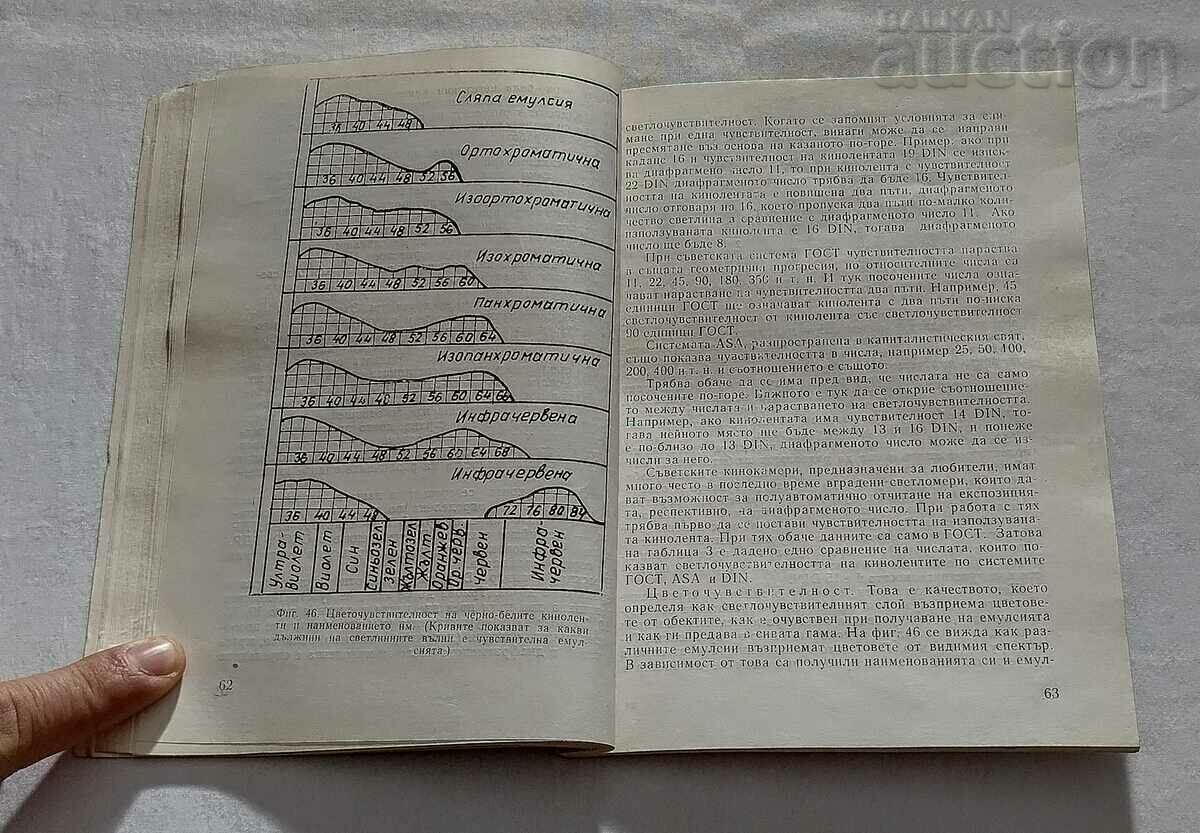 BALKAN
auction
Сляпа емулсия
36 40 44 48
Ортохроматична
36 40 44 48 52 56
Изоортохроматична
36 40 44 48 52 56
Изохроматична
36 40 44 48 52 56 60
Панхроматична
36 40 44 48 52 56 60 64
Изопанхроматична
36 40 44 48 52 56 60 64 68
Инфрачервена
36 40 44 48 52 56 60 64 68
Инфрачервена
36 40 44 48 72 76 80 84
Ултра-
виолет
Виолет
Син
Синьозел
зелен
Жълтозел
Жълт
Оранжев
Ор. черв.
Червен
Инфра-
червен
Фиг. 46. Цветочувствителност на черно-белите кинолен-
ти и наименованието им. (Кривите показват за какви
дължини на светлинните вълни е чувствителна емул-
сията.)
62
светлочувствителност. Когато се запомнят условията за сни-
мане при една чувствителност, винаги може да се направи
пресмятане въз основа на казаното по-горе. Пример: ако при
каданс 16 и чувствителност на кинолентата 19 DIN се изиск-
ва диафрагмено число 11, то при кинолента с чувствителност
22 DIN диафрагменото число трябва да бъде 16. Чувствител-
ността на кинолентата е повишена два пъти, диафрагменото
число отговаря на 16, което пропуска два пъти по-малко коли-
чество светлина в сравнение с диафрагменото число 11. Ако
използуваната кинолента е 16 DIN, тогава диафрагменото
число ще бъде 8.
При съветската система ГОСТ чувствителността нараства
в същата геометрична прогресия, но относителните числа са
11, 22, 45, 90, 180, 350 и т. н. И тук посочените числа озна-
чават нарастване на чувствителността два пъти. Например, 45
единици ГОСТ ще означават кинолента с два пъти по-ниска
светлочувствителност от кинолента със светлочувствителност
90 единици ГОСТ.
Системата ASA, разпространена в капиталистическия свят,
също показва чувствителността в числа, например 25, 50, 100,
200, 400 и т. н. и съотношението е същото.
Трябва обаче да се има пред вид, че числата не са само
посочените по-горе. Важното е тук да се открие съотношение-
то между числата и нарастването на светлочувствителността.
Например, ако кинолентата има чувствителност 14 DIN, то-
гава нейното място ще бъде между 13 и 16 DIN, и понеже
е по-близо до 13 DIN, диафрагменото число може да се из-
числи за него.
Съветските кинокамери, предназначени за любители, имат
много често в последно време вградени светломери, които да-
ват възможност за полуавтоматично отчитане на експозиция-
та, респективно, на диафрагменото число. При работа с тях
трябва първо да се постави чувствителността на използувана-
та кинолента. При тях обаче данните са само в ГОСТ. Затова
на таблица 3 е дадено едно сравнение на числата, които по-
казват светлочувствителността на кинолентите по системите
ГОСТ, ASA и DIN.
Цветочувствителност. Това е качеството, което
определя как светлочувствителният слой възприема цветове-
те от обектите, как е очувствен при получаване на емулсията
и как ги предава в сивата гама. На фиг. 46 се вижда как раз-
личните емулсии възприемат цветовете от видимия спектър.
В зависимост от това са получили наименованията си и емул-
63